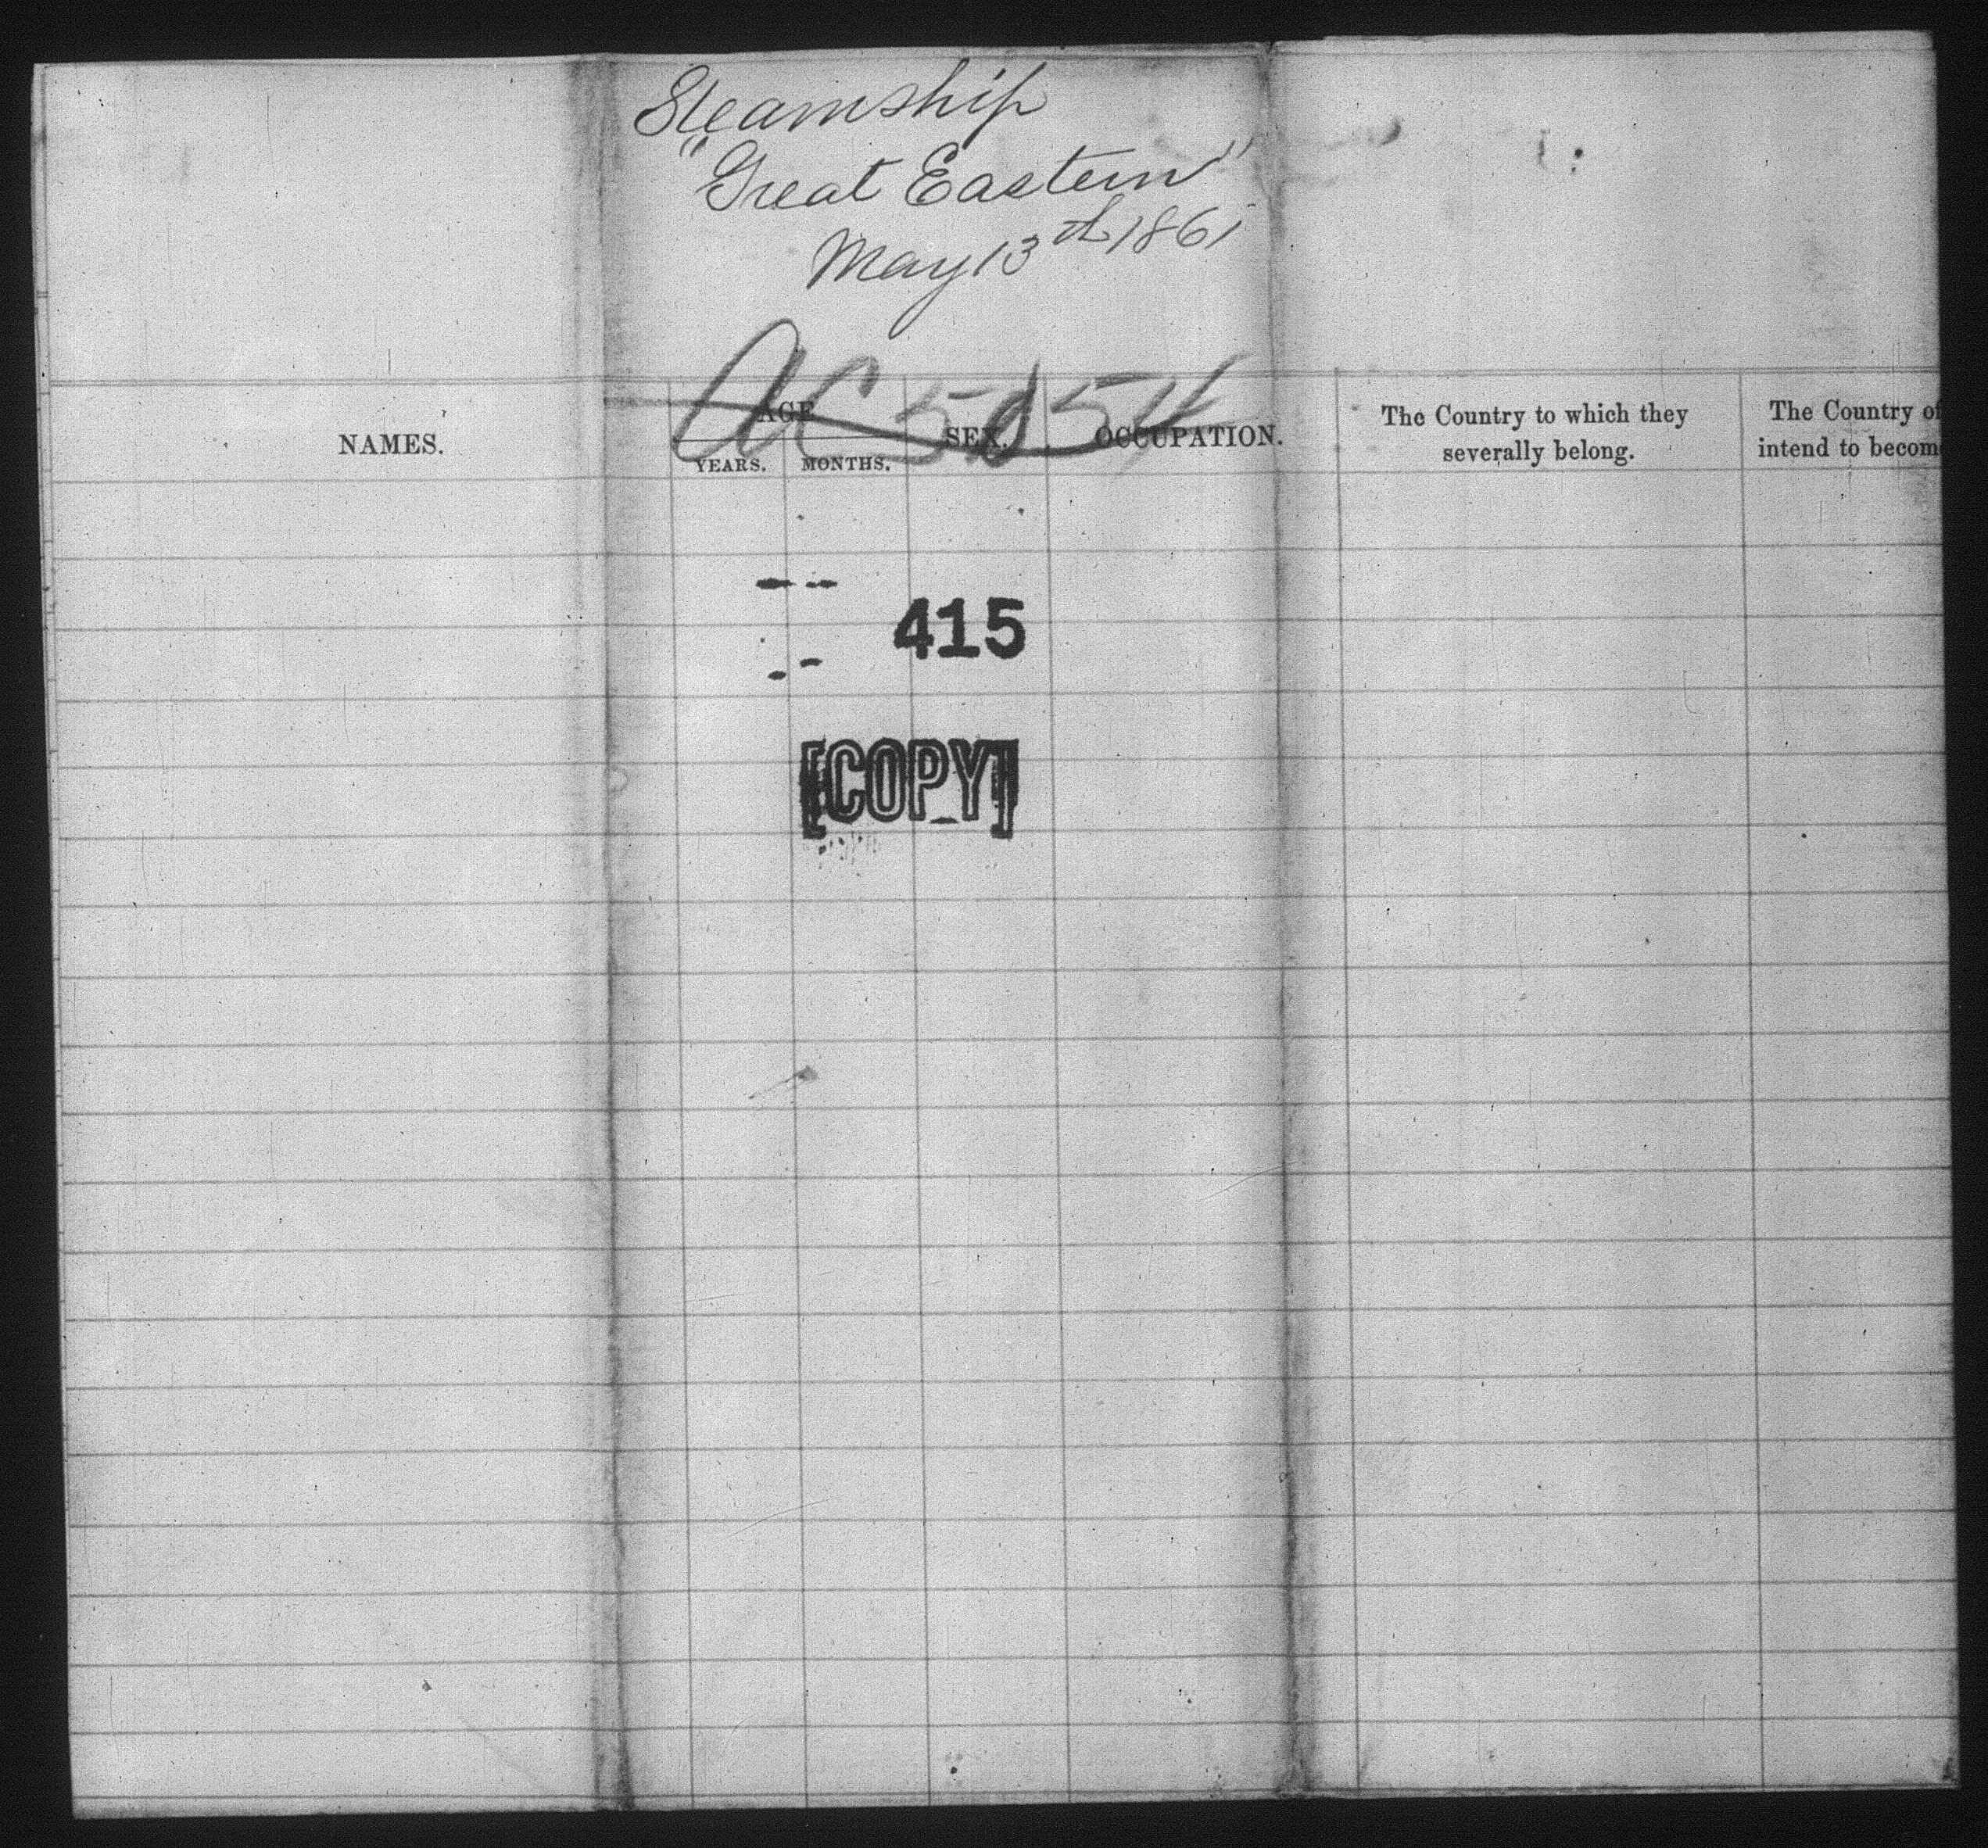 Steamship
"Great Eastern"
May 13th 1861
NAMES.
AGE
YEARS. MONTHS.
SEX.
OCCUPATION.
The Country to which they
severally belong.
The Country of
intend to becom
415
[COPY]